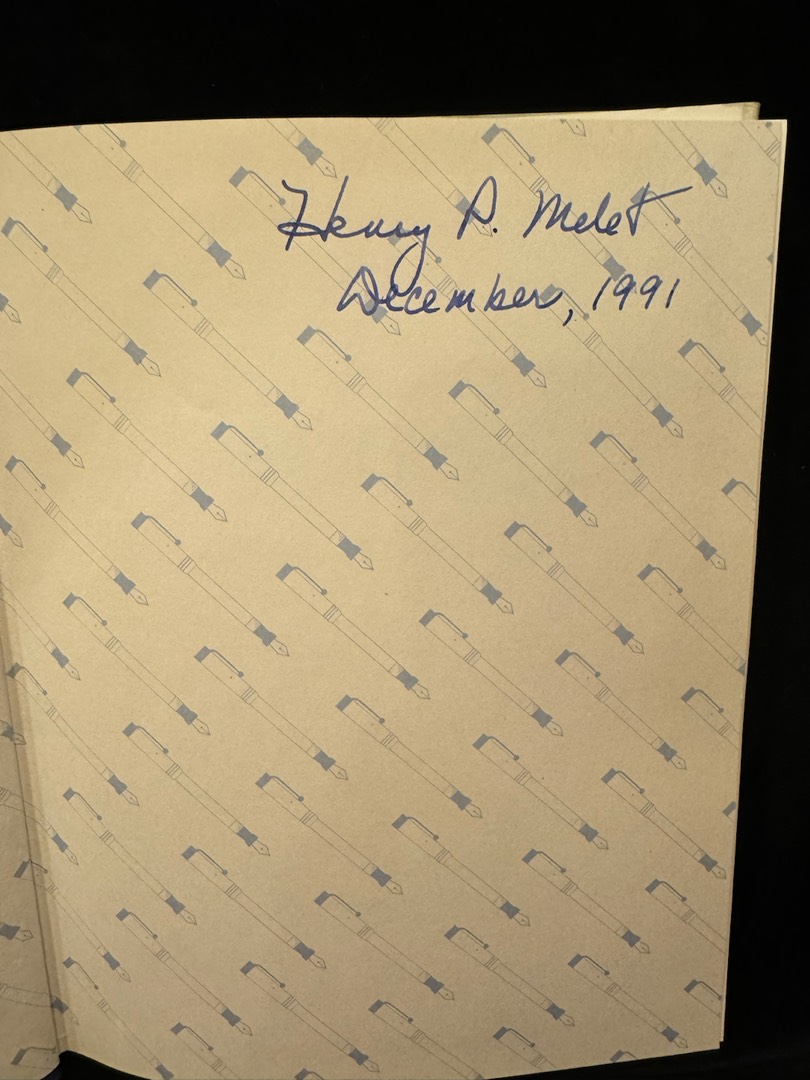 Henry P. Melet
December, 1991